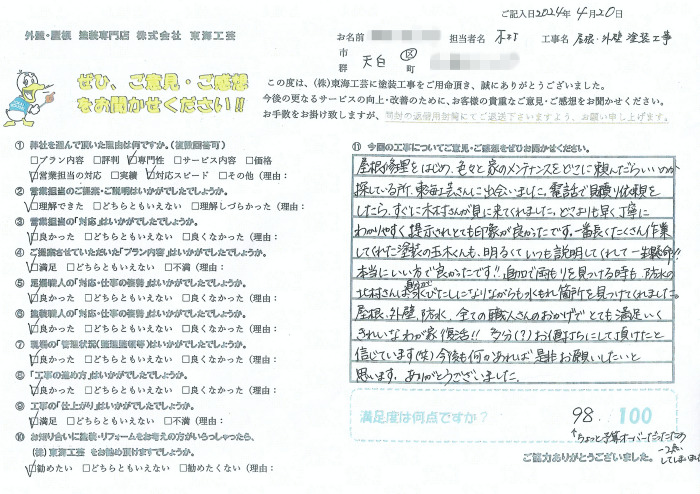 ご記入日2024年4月20日
外壁・屋根 塗装専門店 株式会社 東海工芸
お名前 担当者名 木村 工事名 屋根・外壁塗装工事
市 郡 天白 区 町
ぜひ、ご意見・ご感想
をお聞かせください!!
この度は、(株)東海工芸に塗装工事をご用命頂き、誠にありがとうございました。
今後の更なるサービスの向上・改善のために、お客様の貴重なご意見・ご感想をお聞かせください。
お手数をお掛け致しますが、同封の返信用封筒にてご返送下さいますよう、お願い申し上げます。
① 弊社を選んで頂いた理由は何ですか。(複数回答可)
□プラン内容 □評判 □専門性 □サービス内容 □価格
□営業担当の対応 □実績 □対応スピード □その他(理由:
② 営業担当のご提案・ご説明はいかがでしたでしょうか。
□理解できた □どちらともいえない □理解しづらかった(理由:
③ 営業担当の「対応」はいかがでしたでしょうか。
□良かった □どちらともいえない □良くなかった(理由:
④ ご提案させていただいた「プラン内容」はいかがでしたでしょうか。
□満足 □どちらともいえない □不満(理由:
⑤ 足場職人の「対応・仕事の姿勢」はいかがでしたでしょうか。
□良かった □どちらともいえない □良くなかった(理由:
⑥ 塗装職人の「対応・仕事の姿勢」はいかがでしたでしょうか。
□良かった □どちらともいえない □良くなかった(理由:
⑦ 現場の「管理状況(整理整頓等)はいかがでしたでしょうか。
□良かった □どちらともいえない □良くなかった(理由:
⑧ 「工事の進め方」はいかがでしたでしょうか。
□良かった □どちらともいえない □良くなかった(理由:
⑨ 工事の「仕上がり」はいかがでしたでしょうか。
□満足 □どちらともいえない □不満(理由:
⑩ お知り合いに塗装・リフォームをお考えの方がいらっしゃったら、
(株)東海工芸 をお勧め頂けますでしょうか。
□勧めたい □どちらともいえない □勧めたくない(理由:
⑪ 今回の工事についてご意見・ご感想をぜひお聞かせください。
屋根修理をはじめ、色々と家のメンテナンスをどこに頼んだらいいのか
探している所、東海工芸さんに出会いました。電話で見積り依頼を
したら、すぐに木村さんが見に来てくれました。どこよりも早く丁寧に
わかりやすく提示されとても印象が良かったです。一番長くたくさん作業
してくれた塗装の玉木くんも、明るくていつも説明してくれて一生懸命!!
本当にいい方で良かったです!! 雨もりを見つける時も 防水の
北村さんは水びたしになりながらも水もれ箇所を見つけてくれました。
屋根、外壁、防水、全ての職人さんのおかげでとても満足いく
きれいなわが家復活!! 多分(?)お値打ちにして頂けたと
信じています(笑)今後も何かあれば是非お願いしたいと
思います。ありがとうございました。
満足度は何点ですか? 98 /100
↑ちょっと予算オーバーだったため
-2点
してしまいました
ご協力ありがとうございました。